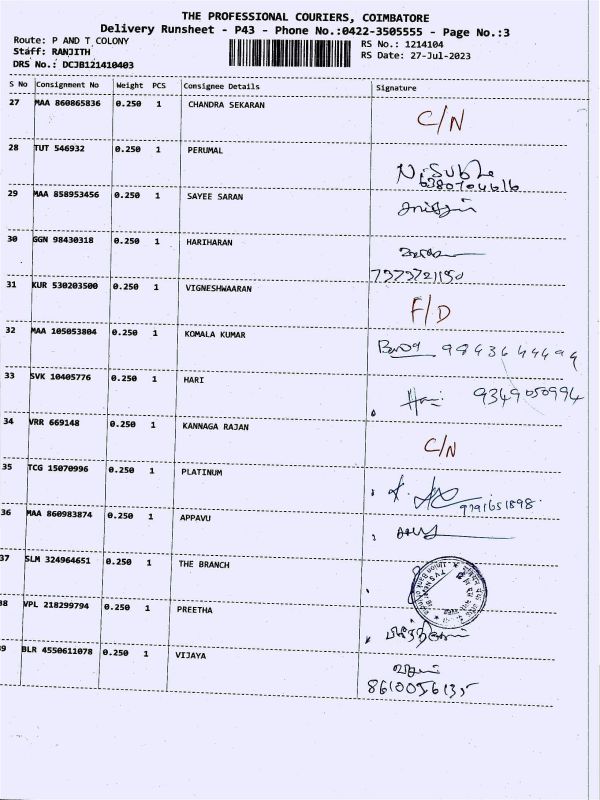 THE PROFESSIONAL COURIERS, COIMBATORE
Delivery Runsheet - P43 - Phone No.:0422-3505555 - Page No.:3
Route: P AND T COLONY
RS No.: 1214104
Staff: RANJITH
RS Date: 27-Jul-2023
DRS No.: DCJB121410403
S No Consignment No Weight PCS Consignee Details Signature
27 MAA 860865836 0.250 1 CHANDRA SEKARAN C/N
28 TUT 546932 0.250 1 PERUMAL
29 MAA 858953456 0.250 1 SAYEE SARAN
30 GGN 98430318 0.250 1 HARIHARAN
31 KUR 530203500 0.250 1 VIGNESHWAARAN F/D
32 MAA 105053804 0.250 1 KOMALA KUMAR
33 SVK 10405776 0.250 1 HARI 9349050994
34 VRR 669148 0.250 1 KANNAGA RAJAN C/N
35 TCG 15070996 0.250 1 PLATINUM 9791651898
36 MAA 860983874 0.250 1 APPAVU
37 SLM 324964651 0.250 1 THE BRANCH
38 VPL 218299794 0.250 1 PREETHA
39 BLR 4550611078 0.250 1 VIJAYA
8610056135